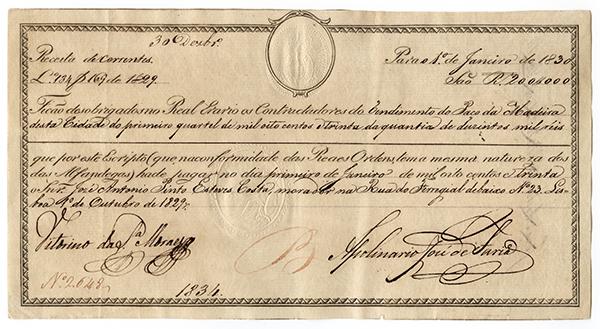 30 Dezbr.º
Receita de Correntes.
L.º 434 f 169 de 1829.
Para o 1.º de Janeiro de 1830
São R.s 200$000
Ficão dsobrigados no Real Erario os Contractadores do Rendimento do Paço da Madeira
desta Cidade do primeiro quartel de mil oito centos e trinta da quantia de duzentos mil réis
que por este Escripto (que na conformidade das Reaes Ordens, tem a mesma natureza dos
das Alfandegas) hade pagar no dia primeiro de Janeiro de mil oito centos e trinta
José Antonio Pinto Esteves Costa, morador na Rua do Ferregial debaixo N.º 23. Lis
boa 9 de Outubro de 1829.
Vitorino da S.ª Moraes
B
Apolinario José de Faria
N.º 2.648
1834.